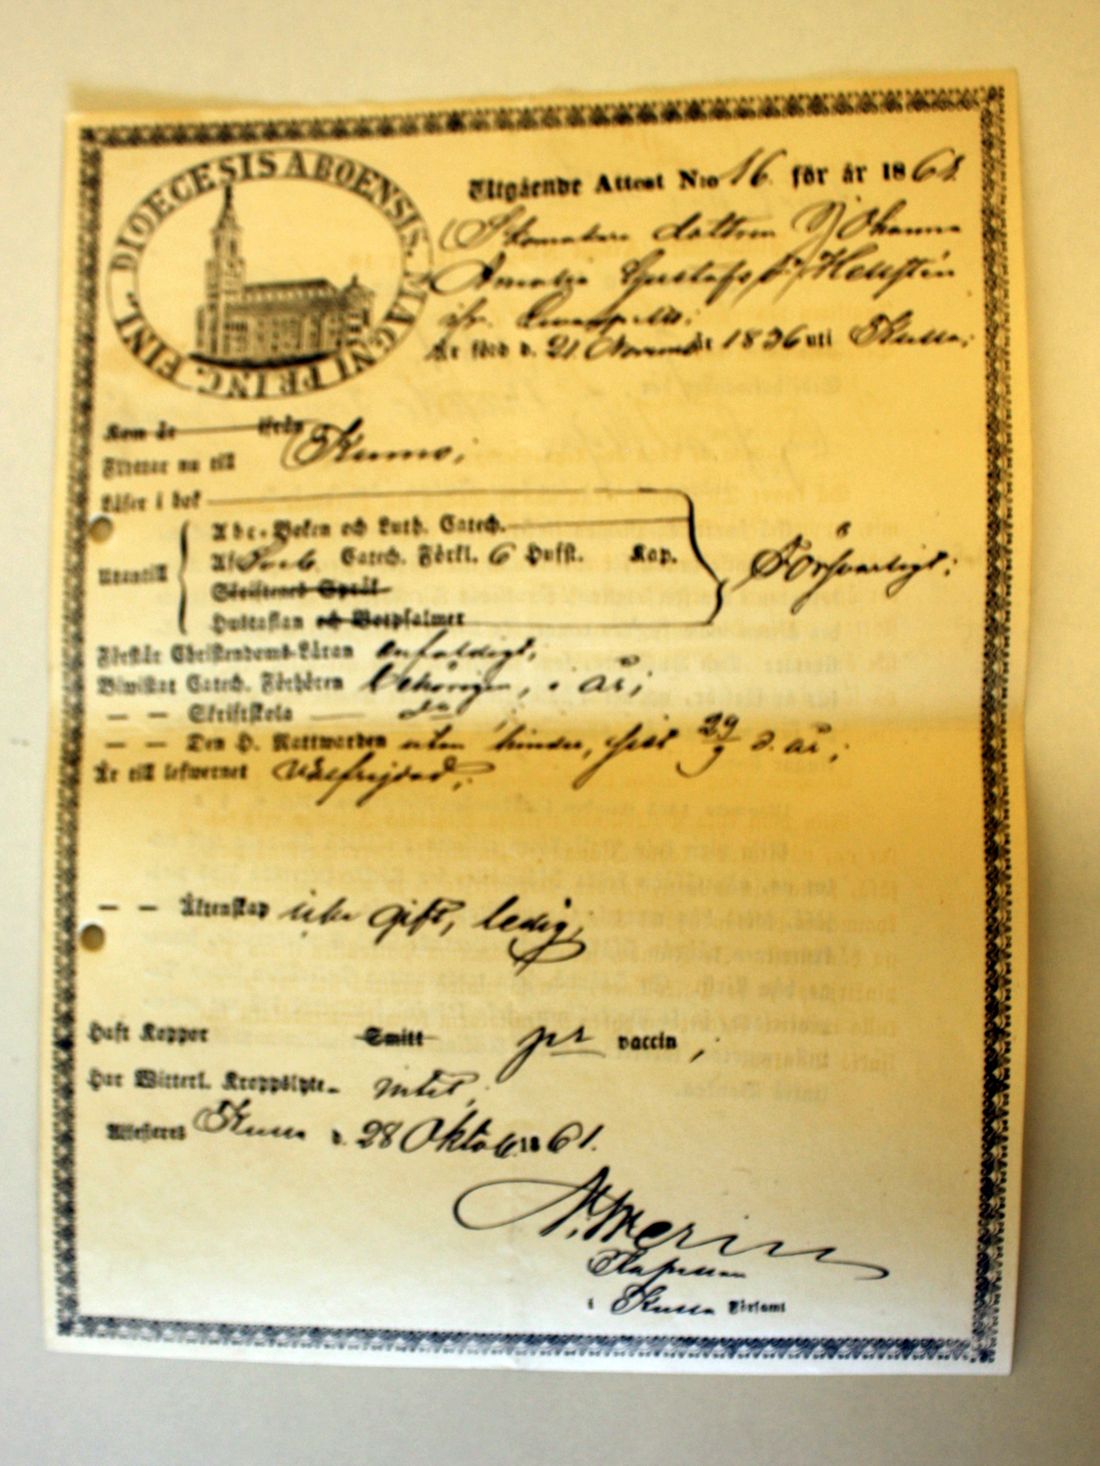 DIOECESIS ABOENSIS. MAGNI PRINC. FINL.
Utgående Attest N:o 16 för år 1861
Skomakare dottren Johanna
Amalia Gustafsd. Hellstén
är född d. 21 Novemb. år 1836 uti
Kom år ifrån
Flyttar nu till Kumo;
Läser i bok
Abc-Boken och Luth. Catech.
Utantill Af Sveb. Catech. Förkl. 6 Hufst. Kap. Försvarligt;
Skriftenes Språk
Hustaflan och Botpsalmer
Förstår Christendoms-Läran enfaldigt;
Biwistat Catech. Förhören behörigen, i år;
— — Skriftskola do
— — Den H. Nattwarden utan hinder, sist 29/9 d. år;
Är till lefwernet välfrejdad;
— — Äktenskap icke gift, ledig,
Haft Koppor Smitt pr vaccin;
Har Witterl. Kroppslyte intet.
Attesteras d. 28 Oktob. 1861.
Kapellan
i Förfamt